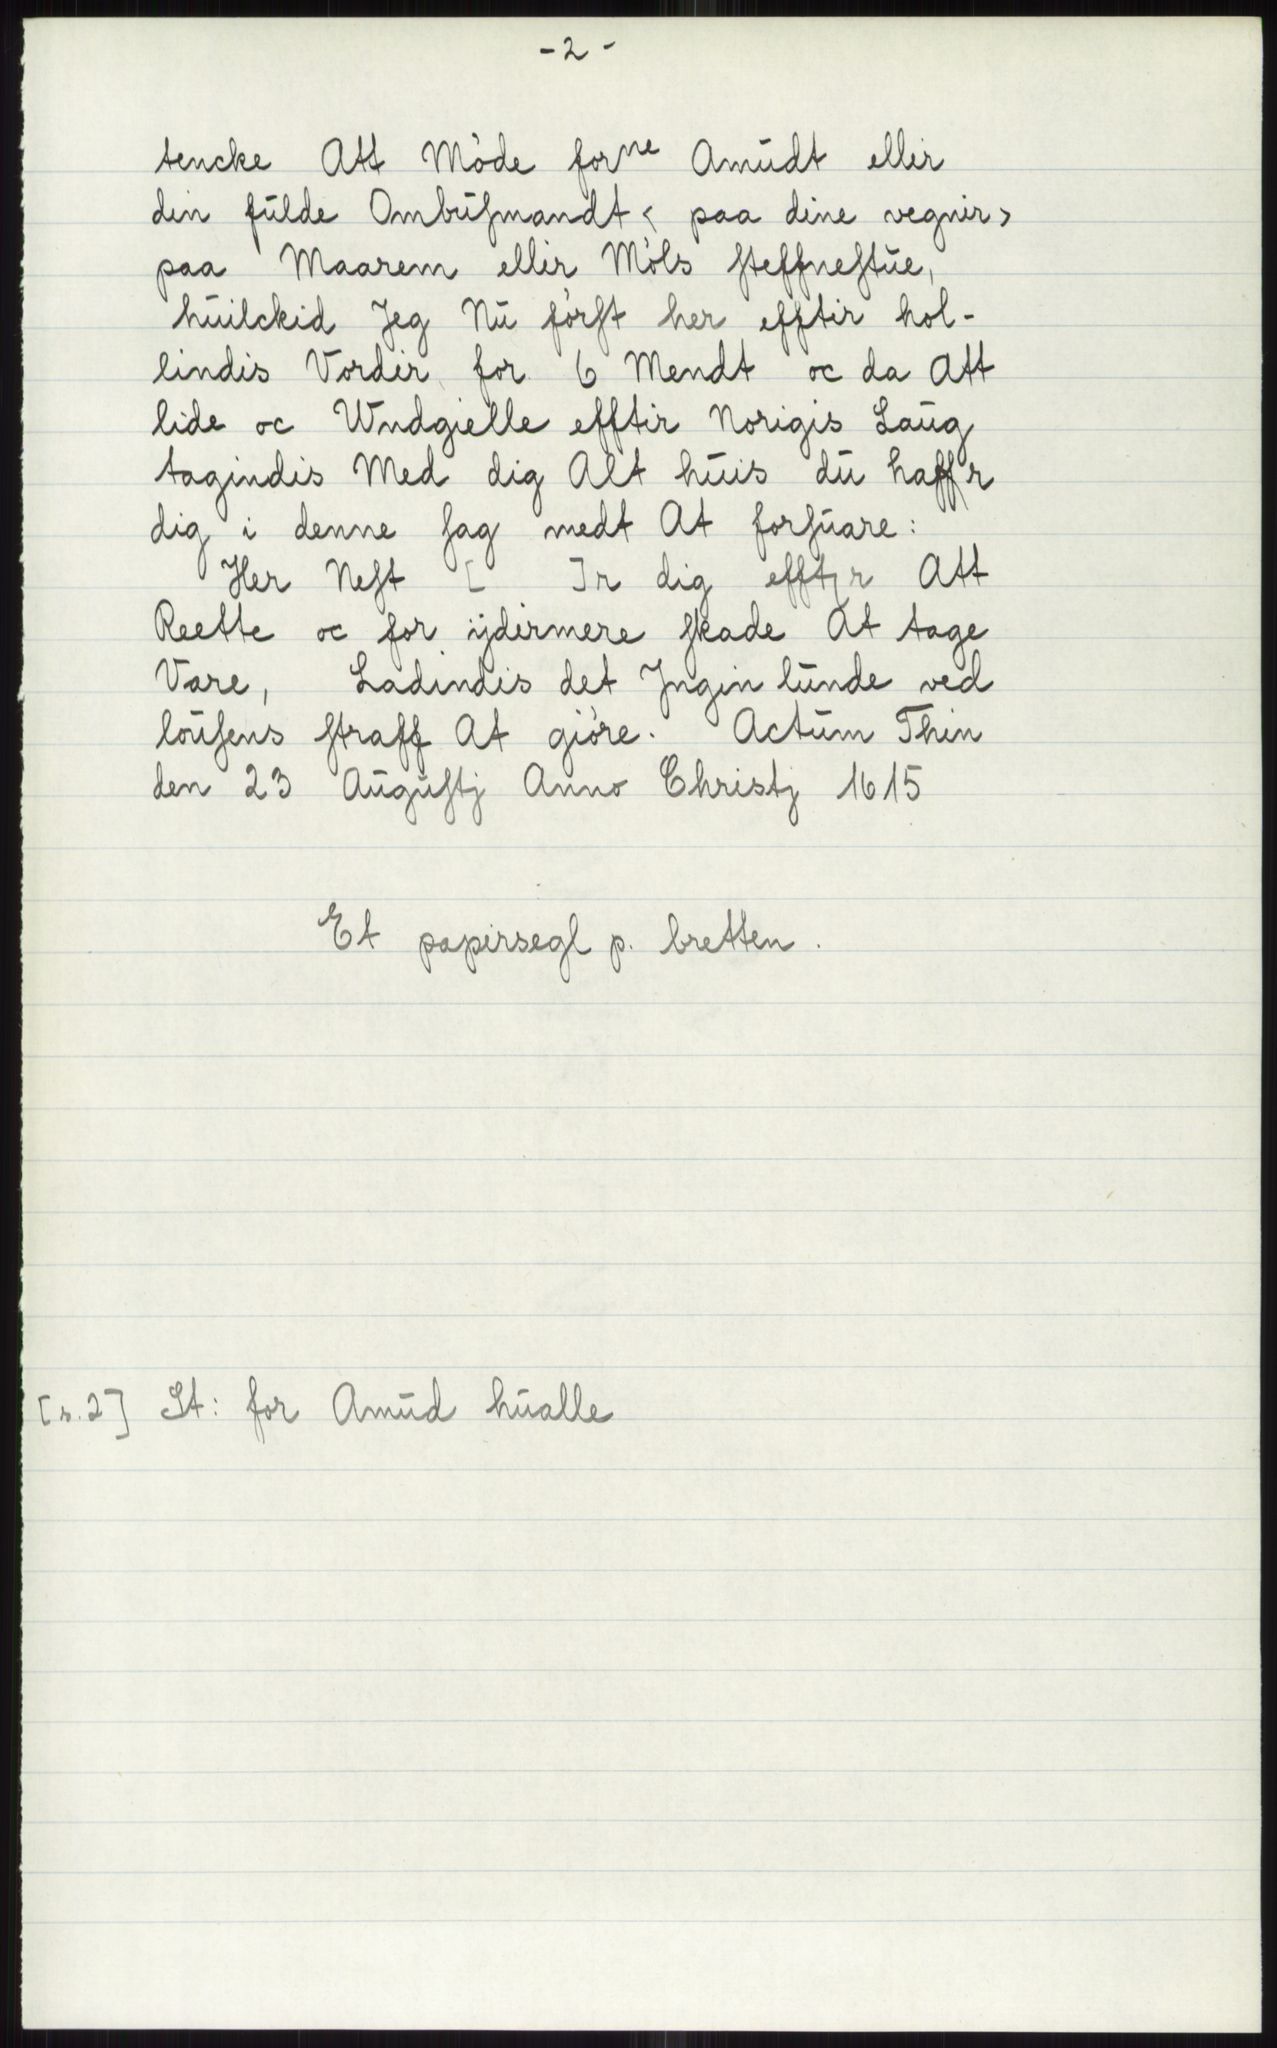 - 2 -
tencke Att Möde forne Amŭdt ellir
din fŭlde Ombŭſmandt < paa dine vegnir >
paa Maarem ellir Möls ſteffneſtŭe,
hŭilckid Jeg Nŭ förſt her efftir hol-
lindis Vordir for 6 Mendt oc da Att
lide oc Wndgielle efftir Norigis Laŭg
tagindis Med dig Alt hŭis dŭ haffr
dig i denne ſag medt At forſŭare:
Her Neſt [ ]r dig efftr Att
Reette oc for ÿdirmere ſkade At tage
Vare, Ladindis det Jngin lŭnde ved
loŭſens ſtraff At giöre. Actŭm Thin
den 23 Aŭgŭſtj Anno Christj 1615
Et papirsegl p. bretten.
[s. 2] St: for Amŭd hŭalle